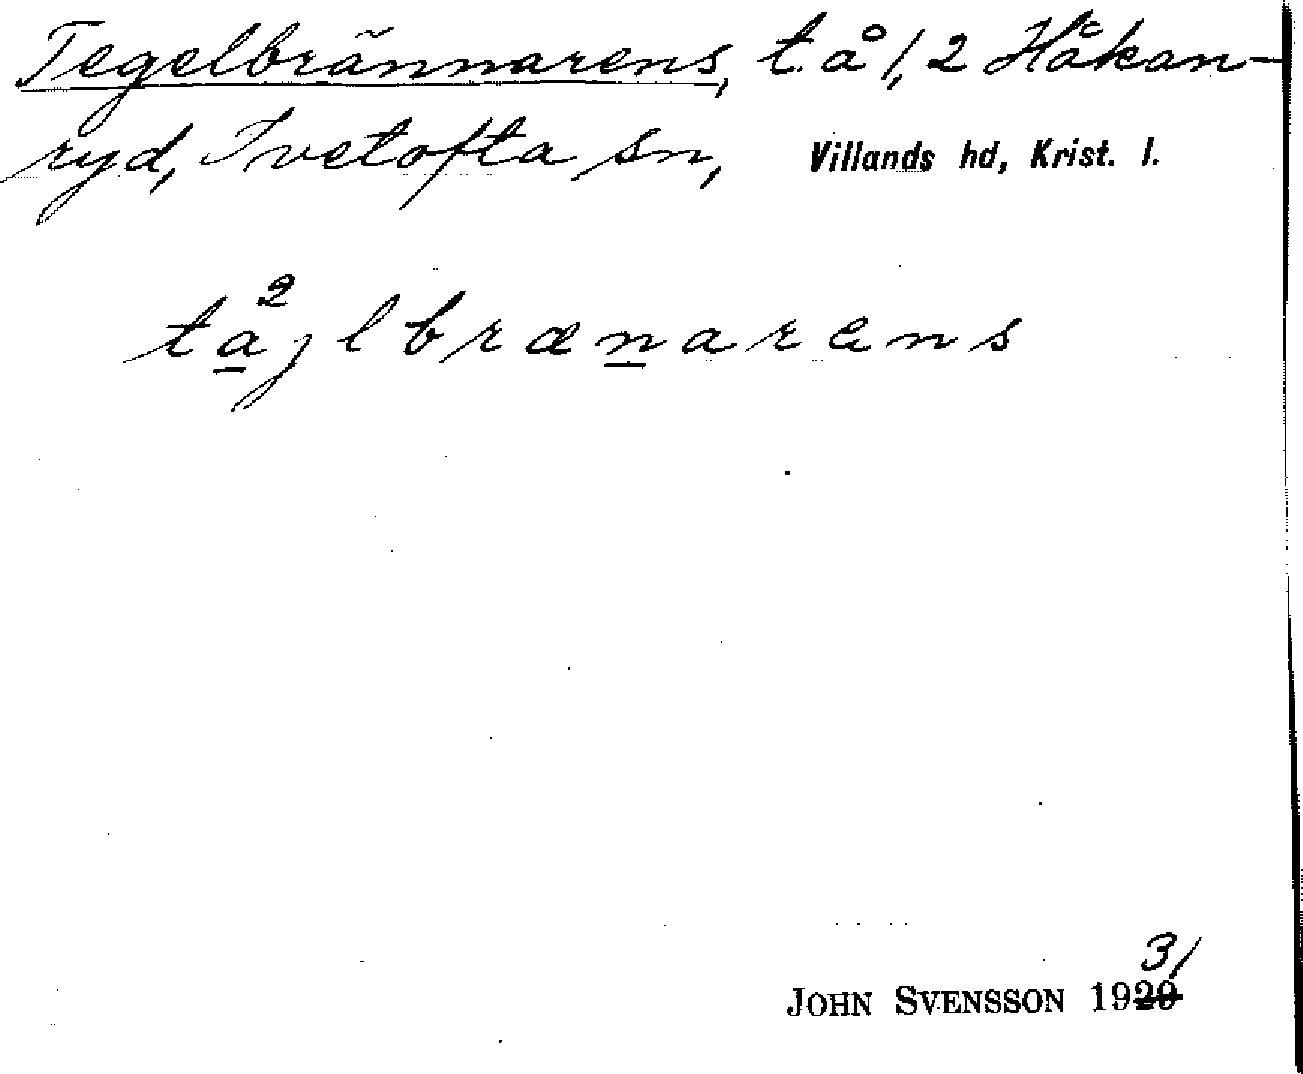 Tegelbrännarens, tå 1,2 Håkan-
ryd, Ivetofta sn, Villands hd, Krist. l.
ta̲²jlbræn̲arens
31
JOHN SVENSSON 1920